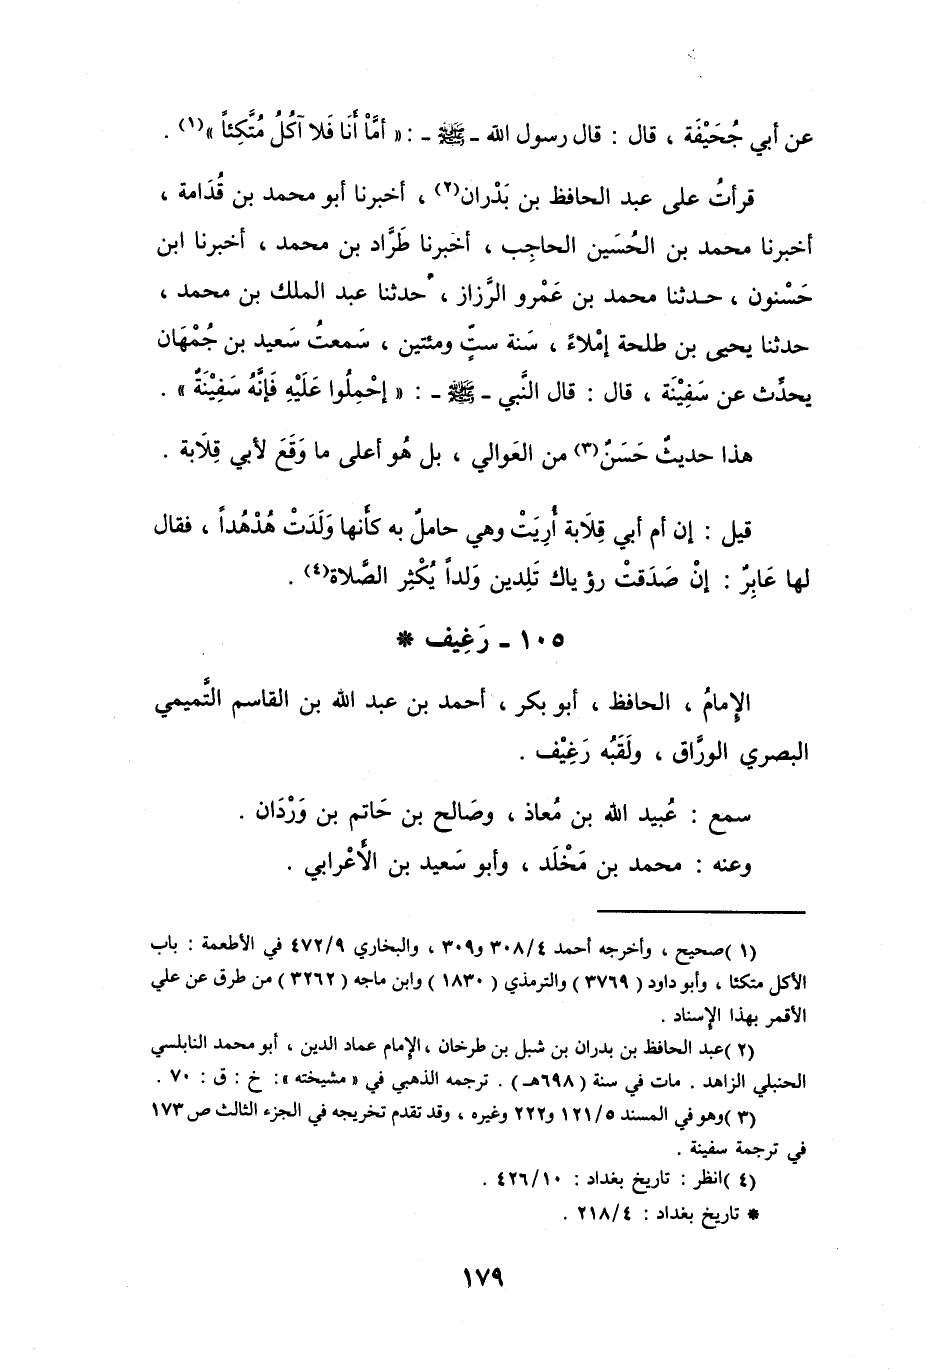 عن أبي جُحَيْفَة ، قال : قال رسول الله ـ ﷺ ـ : « أمَّا أَنَا فَلا آكُلُ مُتَّكِئاً »(١) .
قرأتُ على عبد الحافظ بن بَدْران(٢) ، أخبرنا أبو محمد بن قُدَامة ،
أخبرنا محمد بن الحُسَين الحاجِب ، أخبرنا طَرَّاد بن محمد ، أخبرنا ابن
حَسْنون ، حدثنا محمد بن عَمْرو الرَّزاز ، حدثنا عبد الملك بن محمد ،
حدثنا يحيى بن طلحة إمْلاءً ، سَنة ستٍّ ومئتين ، سَمعتُ سَعيد بن جُمْهَان
يحدِّث عن سَفِيْنَة ، قال : قال النَّبي ـ ﷺ ـ : « إحْمِلُوا عَلَيْهِ فَإنَّهُ سَفِيْنَةٌ » .
هذا حديثٌ حَسَنٌ(٣) من العَوالي ، بل هُو أعلى ما وَقَعَ لأبي قِلَابة .
قيل : إن أم أبي قِلَابة أُرِيَتْ وهي حاملٌ به كأَنها وَلَدَتْ هُدْهُداً ، فقال
لها عَابِرٌ : إنْ صَدَقتْ رؤياك تَلِدين وَلداً يُكْثِر الصَّلاة(٤) .
١٠٥ ـ رَغِيف *
الإِمامُ ، الحافظ ، أبو بكر ، أحمد بن عبد الله بن القاسم التَّميمي
البصري الورَّاق ، ولَقَبُه رَغِيْف .
سمع : عُبيد الله بن مُعاذ ، وصَالح بن حَاتم بن وَرْدَان .
وعنه : محمد بن مَخْلَد ، وأبو سَعيد بن الأَعْرابي .
(١) صحيح ، وأخرجه أحمد ٣٠٨/٤ و٣٠٩ ، والبخاري ٤٧٢/٩ في الأطعمة : باب
الأكل متكئا ، وأبو داود ( ٣٧٦٩ ) والترمذي ( ١٨٣٠ ) وابن ماجه ( ٣٢٦٢ ) من طرق عن علي
الأقمر بهذا الإِسناد .
(٢) عبد الحافظ بن بدران بن شبل بن طرخان ، الإمام عماد الدين ، أبو محمد النابلسي
الحنبلي الزاهد . مات في سنة ( ٦٩٨هـ ) . ترجمه الذهبي في « مشيخته » : خ : ق : ٧٠ .
(٣) وهو في المسند ١٢١/٥ و٢٢٢ وغيره ، وقد تقدم تخريجه في الجزء الثالث ص ١٧٣
في ترجمة سفينة .
(٤) انظر : تاريخ بغداد : ٤٢٦/١٠ .
* تاريخ بغداد : ٢١٨/٤ .
١٧٩